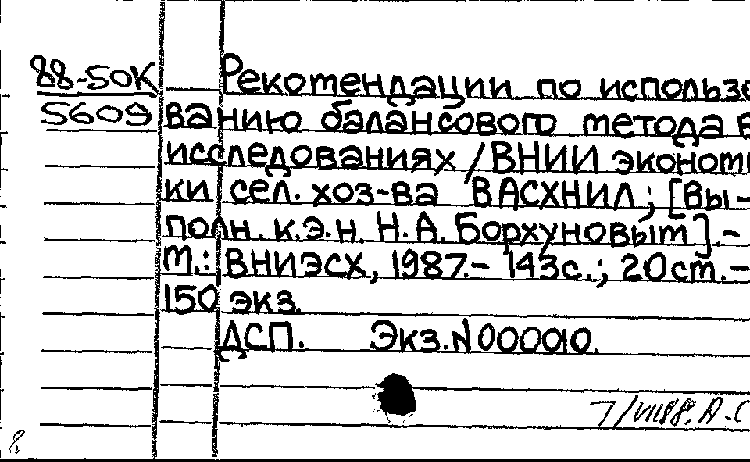 88-50К Рекомендации по использо
5609 ванию балансового метода в
исследованиях / ВНИИ экономи
ки сел. хоз-ва ВАСХНИЛ; [Вы-
полн. к.э.н. Н.А. Борхуновым].-
М.: ВНИЭСХ, 1987.- 143с.; 20см.-
150 экз.
ДСП. Экз.N000010.